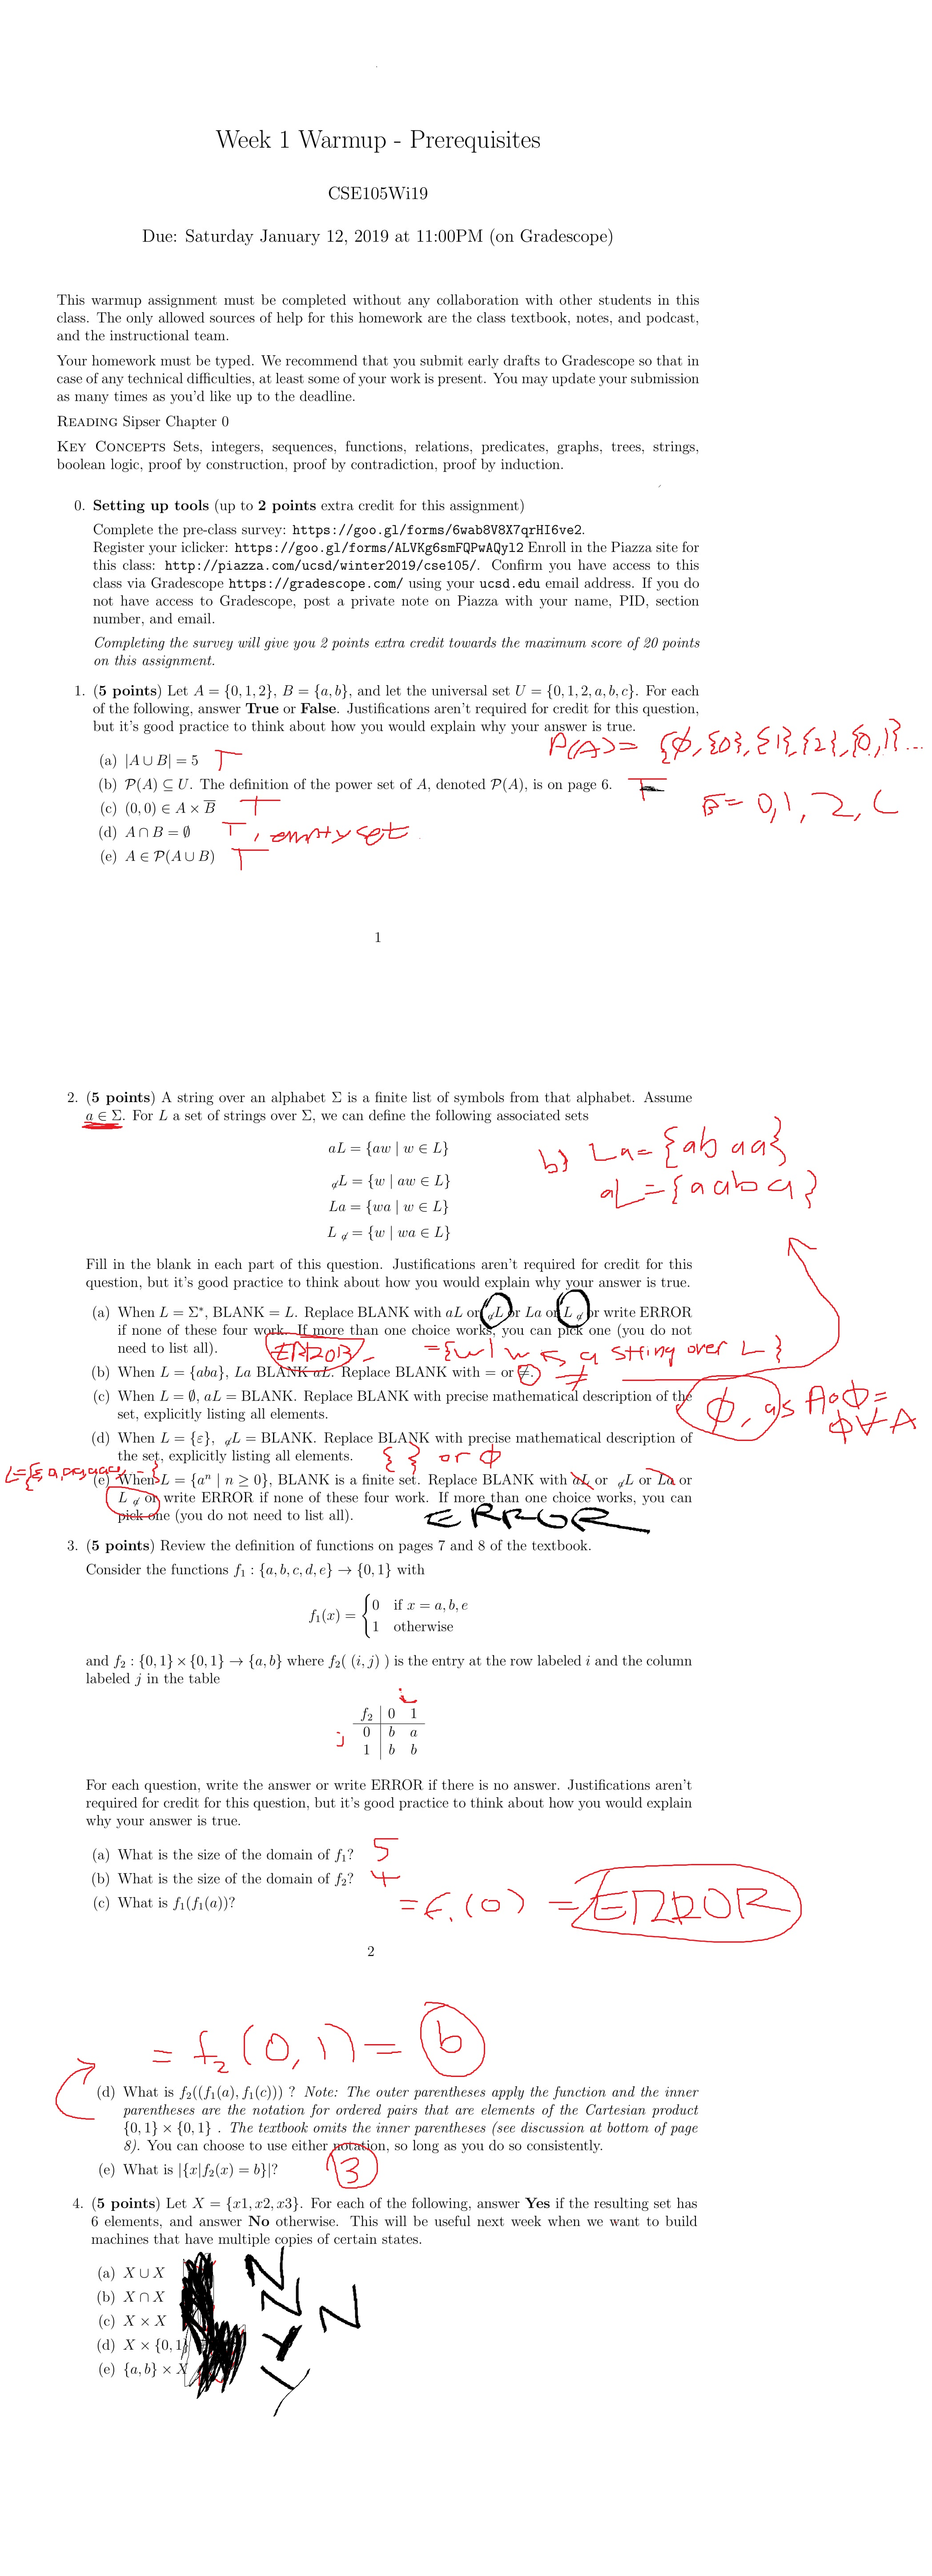 Week 1 Warmup - Prerequisites
CSE105Wi19
Due: Saturday January 12, 2019 at 11:00PM (on Gradescope)
This warmup assignment must be completed without any collaboration with other students in this
class. The only allowed sources of help for this homework are the class textbook, notes, and podcast,
and the instructional team.
Your homework must be typed. We recommend that you submit early drafts to Gradescope so that in
case of any technical difficulties, at least some of your work is present. You may update your submission
as many times as you'd like up to the deadline.
READING Sipser Chapter 0
KEY CONCEPTS Sets, integers, sequences, functions, relations, predicates, graphs, trees, strings,
boolean logic, proof by construction, proof by contradiction, proof by induction.
0. Setting up tools (up to 2 points extra credit for this assignment)
Complete the pre-class survey: https://goo.gl/forms/6wab8V8X7qrHI6ve2.
Register your iclicker: https://goo.gl/forms/ALVKg6smFQPwAQyl2 Enroll in the Piazza site for
this class: http://piazza.com/ucsd/winter2019/cse105/. Confirm you have access to this
class via Gradescope https://gradescope.com/ using your ucsd.edu email address. If you do
not have access to Gradescope, post a private note on Piazza with your name, PID, section
number, and email.
Completing the survey will give you 2 points extra credit towards the maximum score of 20 points
on this assignment.
1. (5 points) Let A = {0, 1, 2}, B = {a, b}, and let the universal set U = {0, 1, 2, a, b, c}. For each
of the following, answer True or False. Justifications aren't required for credit for this question,
but it's good practice to think about how you would explain why your answer is true.
P(A) = {ϕ, {0}, {1}, {2}, {0, 1}...
(a) |A ∪ B| = 5 T
(b) P(A) ⊆ U. The definition of the power set of A, denoted P(A), is on page 6.
B̅ = 0, 1, 2, C
(c) (0, 0) ∈ A × B̅ T
(d) A ∩ B = ∅ T, empty set
(e) A ∈ P(A ∪ B) T
1
2. (5 points) A string over an alphabet Σ is a finite list of symbols from that alphabet. Assume
a ∈ Σ. For L a set of strings over Σ, we can define the following associated sets
aL = {aw | w ∈ L}
a̸L = {w | aw ∈ L}
La = {wa | w ∈ L}
L a̸ = {w | wa ∈ L}
b) La = {ab aa}
aL = {a ab a}
Fill in the blank in each part of this question. Justifications aren't required for credit for this
question, but it's good practice to think about how you would explain why your answer is true.
(a) When L = Σ*, BLANK = L. Replace BLANK with aL or a̸L or La or L a̸ or write ERROR
if none of these four work. If more than one choice works, you can pick one (you do not
need to list all). ERROR = {w | w is a string over L}
(b) When L = {aba}, La BLANK aL. Replace BLANK with = or ≠. ≠
(c) When L = ∅, aL = BLANK. Replace BLANK with precise mathematical description of the
set, explicitly listing all elements.
ϕ, as A∘ϕ =
ϕ ∀ A
(d) When L = {ε}, a̸L = BLANK. Replace BLANK with precise mathematical description of
the set, explicitly listing all elements. { } or ϕ
(e) When L = {aⁿ | n ≥ 0}, BLANK is a finite set. Replace BLANK with aL or a̸L or La or
L a̸ or write ERROR if none of these four work. If more than one choice works, you can
pick one (you do not need to list all). ERROR
3. (5 points) Review the definition of functions on pages 7 and 8 of the textbook.
Consider the functions f₁ : {a, b, c, d, e} → {0, 1} with
f₁(x) = { 0 if x = a, b, e
1 otherwise
and f₂ : {0, 1} × {0, 1} → {a, b} where f₂( (i, j) ) is the entry at the row labeled i and the column
labeled j in the table
i
f₂ 0 1
0 b a
j
1 b b
For each question, write the answer or write ERROR if there is no answer. Justifications aren't
required for credit for this question, but it's good practice to think about how you would explain
why your answer is true.
(a) What is the size of the domain of f₁? 5
(b) What is the size of the domain of f₂? 4
(c) What is f₁(f₁(a))? = f₁(0) = ERROR
2
= f₂(0, 1) = b
(d) What is f₂((f₁(a), f₁(c))) ? Note: The outer parentheses apply the function and the inner
parentheses are the notation for ordered pairs that are elements of the Cartesian product
{0, 1} × {0, 1} . The textbook omits the inner parentheses (see discussion at bottom of page
8). You can choose to use either notation, so long as you do so consistently.
(e) What is |{x|f₂(x) = b}|? 3
4. (5 points) Let X = {x1, x2, x3}. For each of the following, answer Yes if the resulting set has
6 elements, and answer No otherwise. This will be useful next week when we want to build
machines that have multiple copies of certain states.
(a) X ∪ X N
(b) X ∩ X N
(c) X × X N
(d) X × {0, 1} Y
(e) {a, b} × X Y